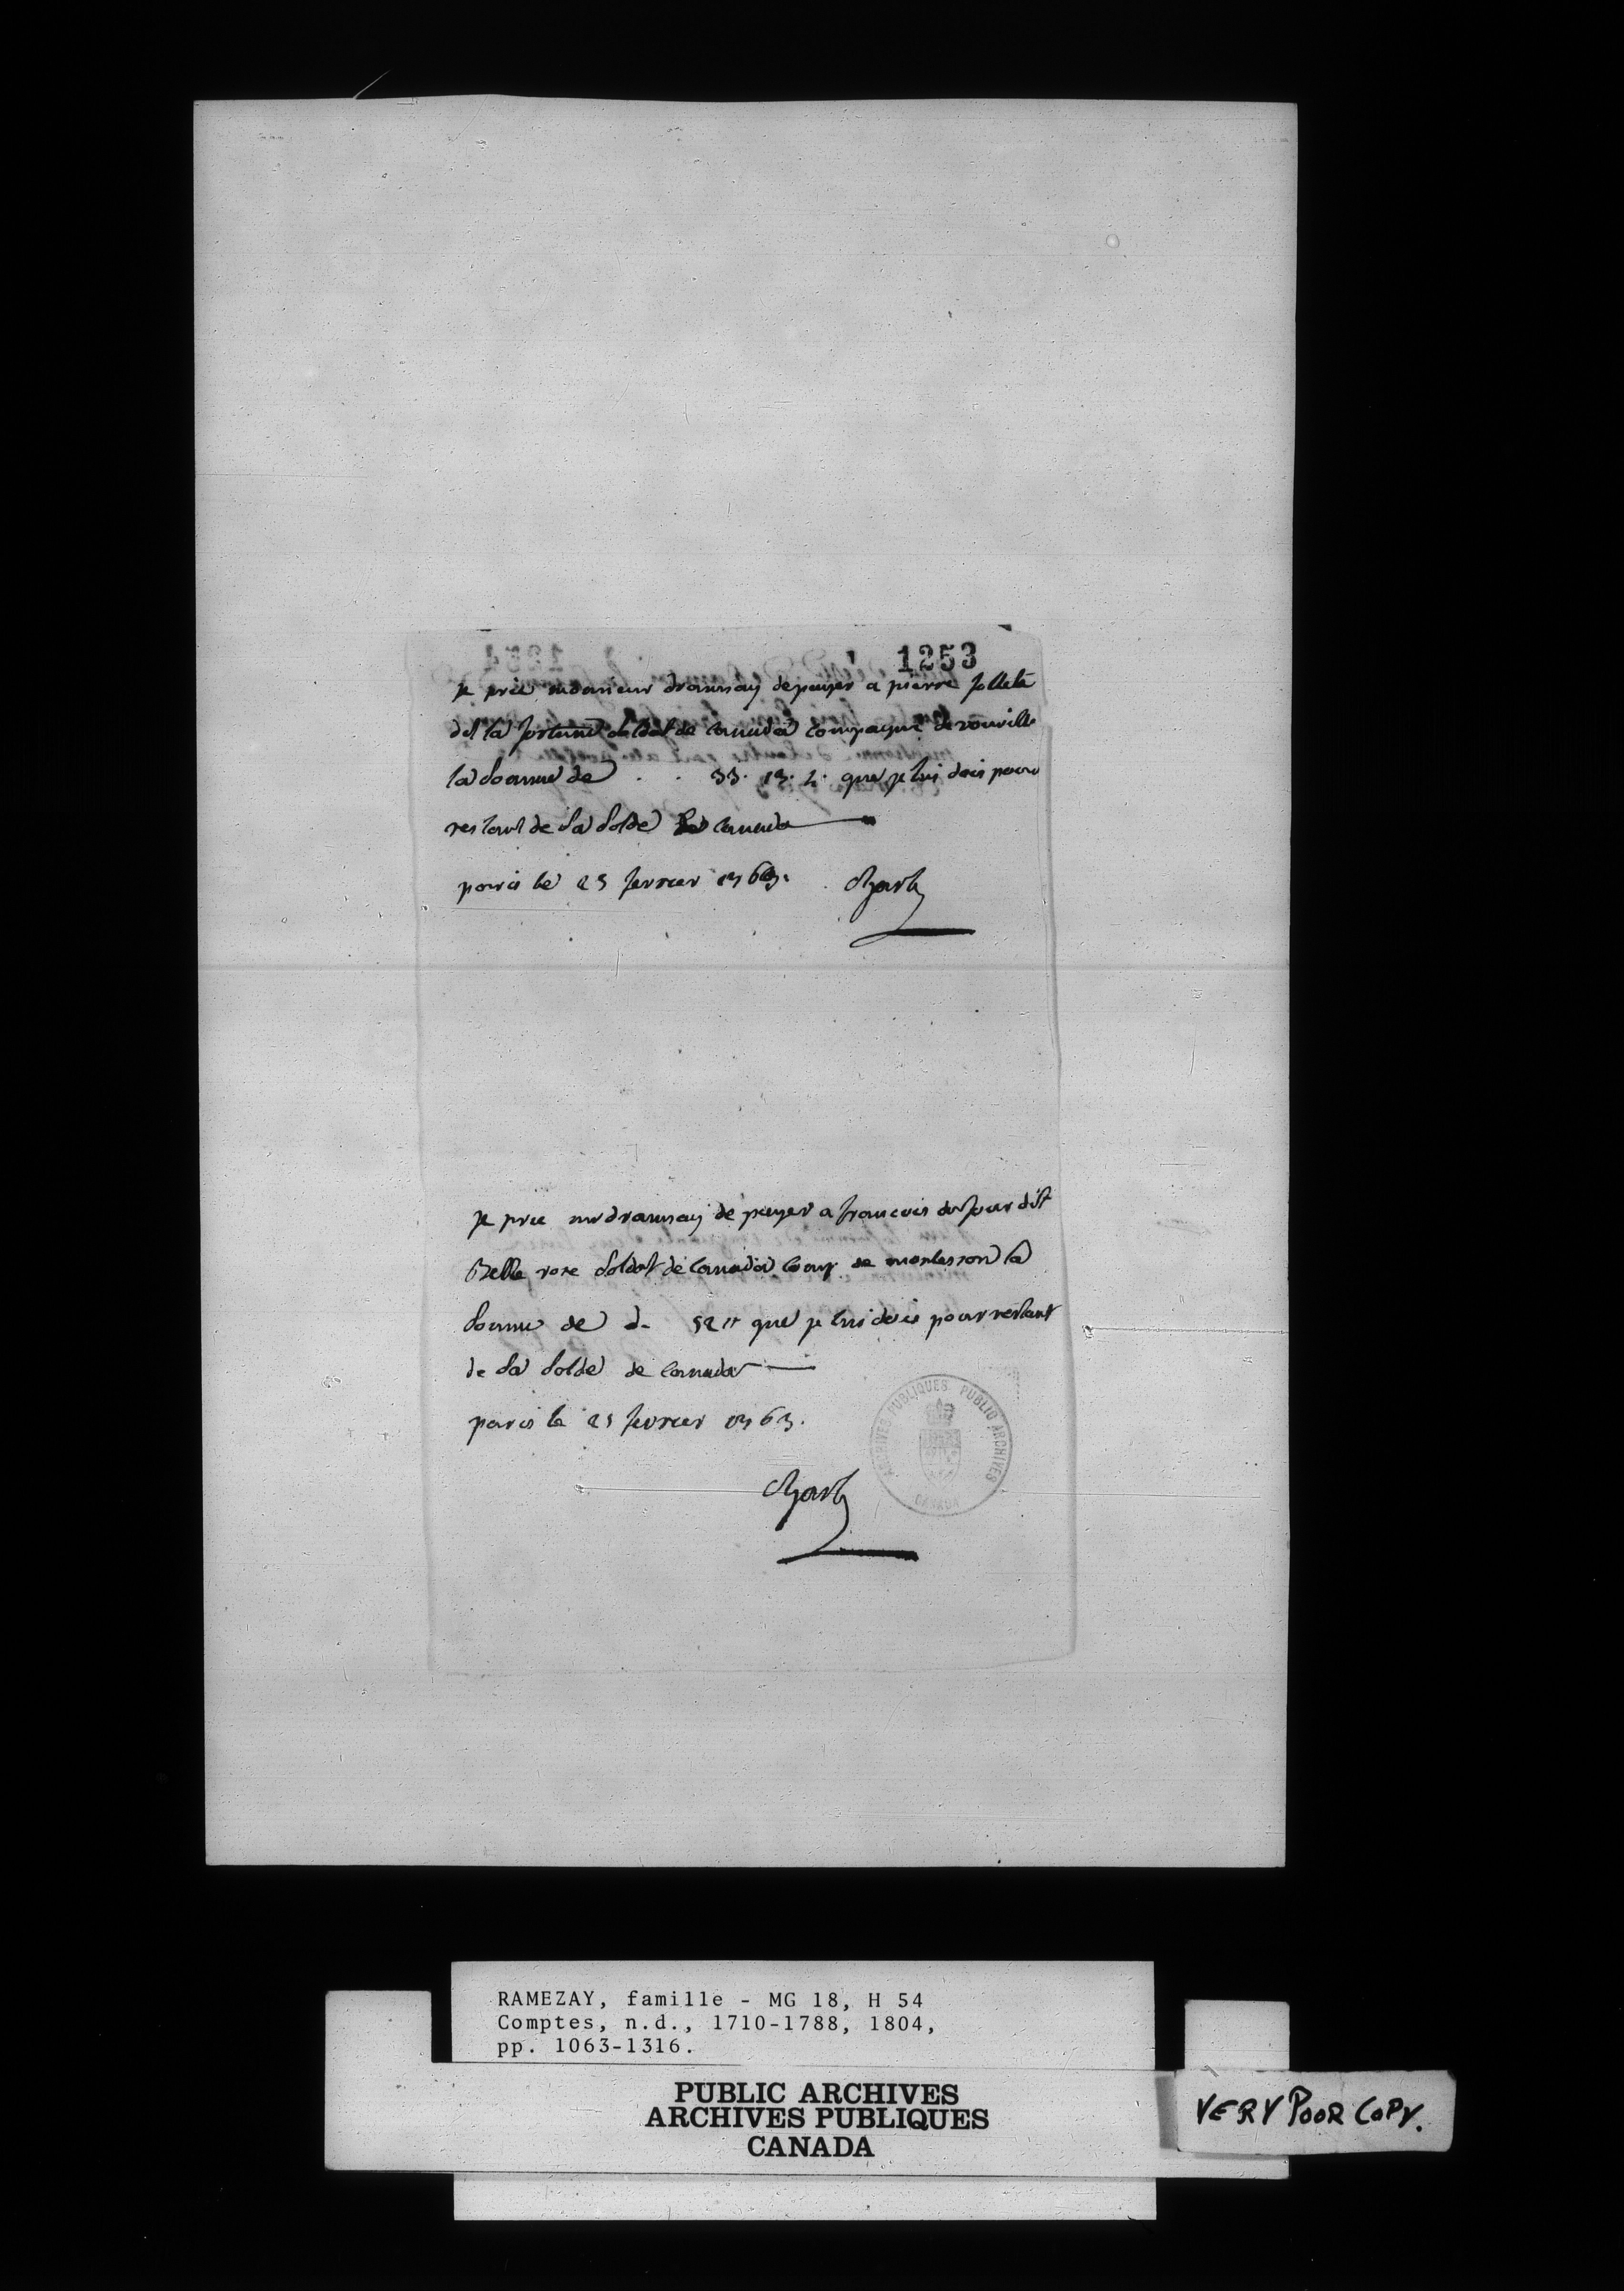 1253
je prie monsieur dramsay depayer a pierre
dit la fortune soldat de canada compagnie de rouville
la somme de . . 33. 13. 4. que je lui dois pour
restant de sa solde de canada
paris le 25 fevrier 1763.
je prie mr dramsay de payer a francois dufour dit
Belle rose soldat de canada comp de montesson la
somme de d. 52 ₶ que je lui dois pour restant
de sa solde de canada
paris le 25 fevrier 1763.
ARCHIVES PUBLIQUES PUBLIC ARCHIVES
CANADA
RAMEZAY, famille - MG 18, H 54
Comptes, n.d., 1710-1788, 1804,
pp. 1063-1316.
PUBLIC ARCHIVES
ARCHIVES PUBLIQUES
CANADA
VERY POOR COPY.